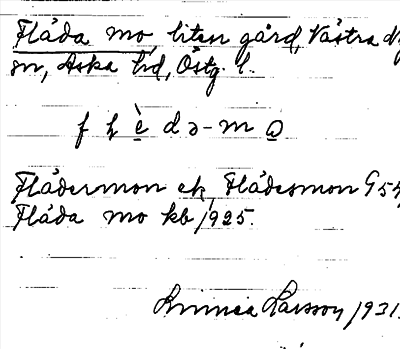 Flåda mo, liten gård, Västra Ny
sn, Aska hd, Östg. l.
f l è d ə - m ω
Flådermon ek, Flådesmon G 54,
Flåda mo kb 1925.
Linnea Larsson 1931.